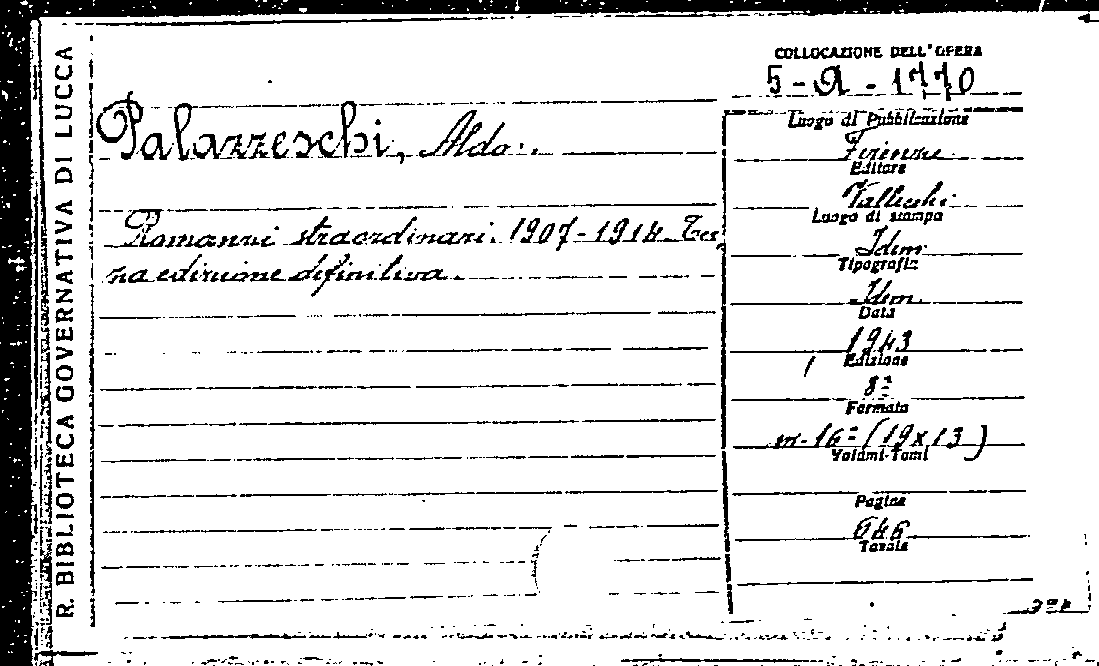 R. BIBLIOTECA GOVERNATIVA DI LUCCA
COLLOCAZIONE DELL'OPERA
5-A-1770
Palazzeschi, Aldo.
Romanzi straordinari. 1907-1914. Ter
za edizione definitiva.
Luogo di Pubblicazione
Firenze
Editore
Vallecchi
Luogo di stampa
Idem
Tipografia
Idem
Data
1943
Edizione
8ª
Formato
in-16º (19x13)
Volumi-Tomi
Pagine
646
Tavole